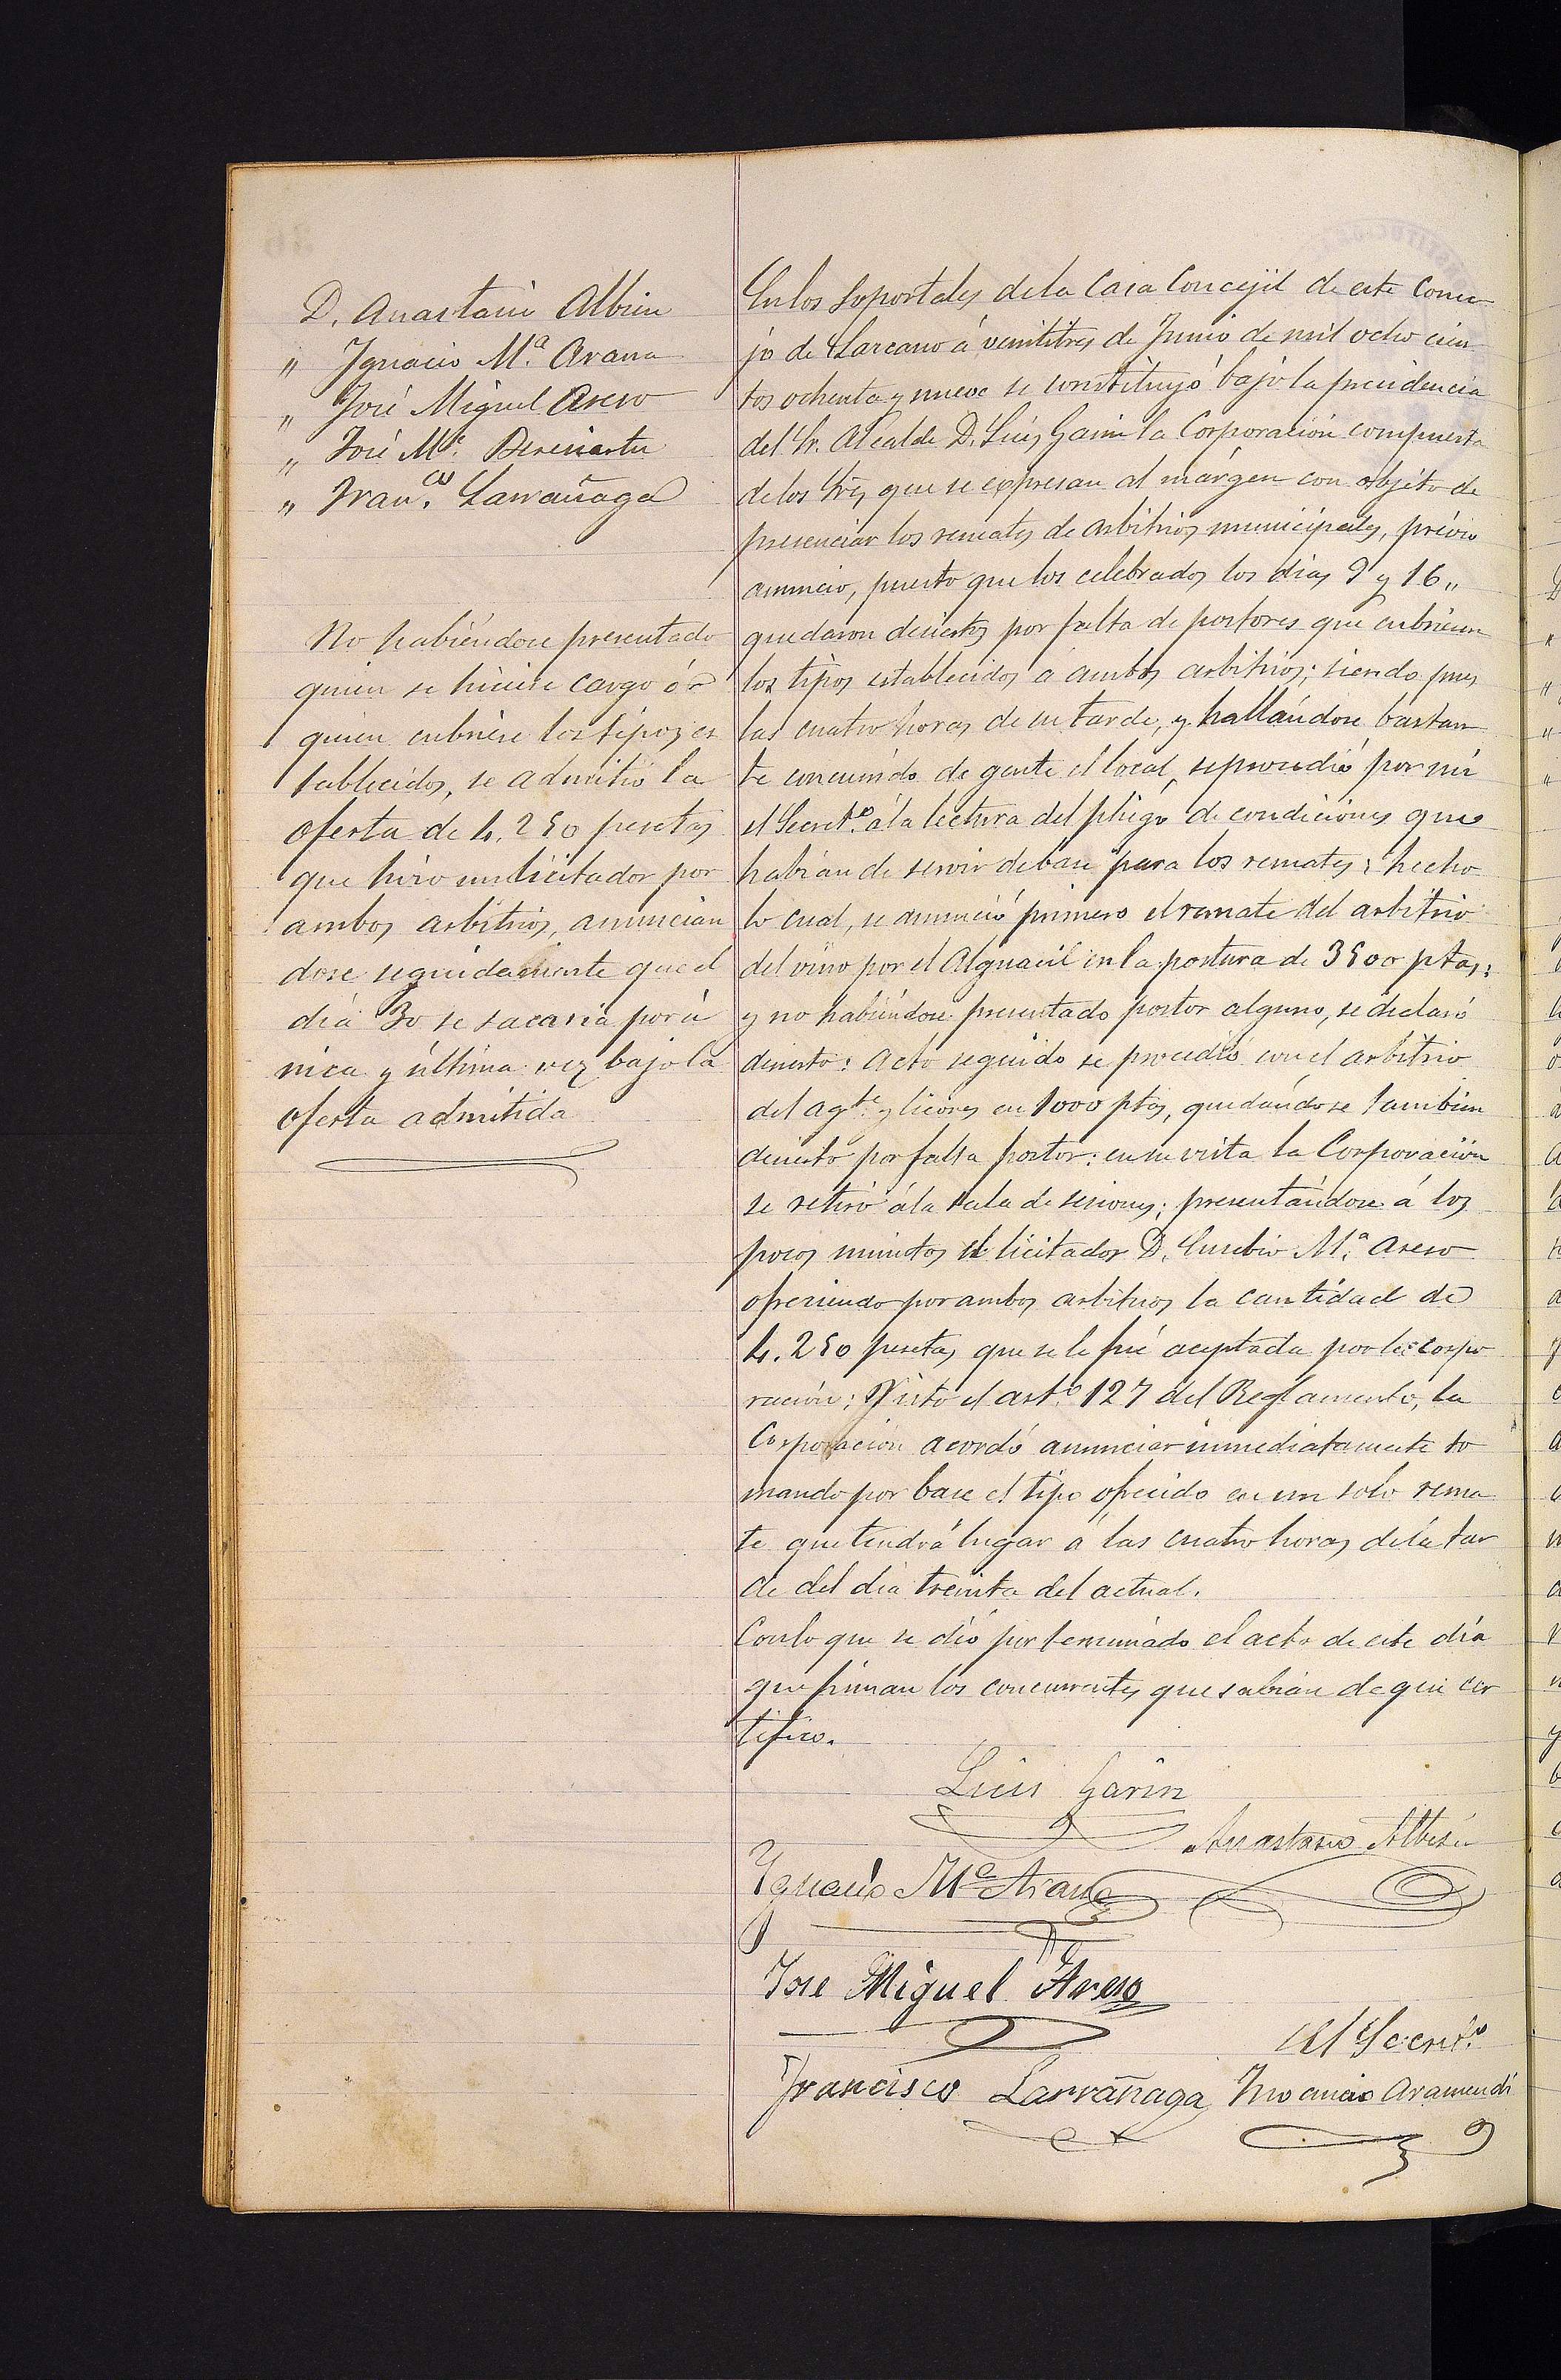 D. Anastasio Albisu
" Ignacio M.ª Arana
" José Miguel Areso
" José M.ª Bereciartu
" Fran.co Larrañaga
No habiéndose presentado
quien se hiciese cargo ó
quien cubriese los tipos es
tablecidos, se admitió la
oferta de 4.250 pesetas
que hizo un licitador por
ambos arbitrios, anuncian
dose seguidamente que el
día 30 se sacaria por ú
nica y última vez bajo la
oferta admitida
En los soportales de la Casa Concejil de este Conce
jo de Lazcano á veintitres de Junio de mil ocho cien
tos ochenta y nueve se constituyó bajo la presidencia
del Sr. Alcalde D. Luis Garin la Corporación compuesta
de los Srs que se expresan al márgen con objeto de
presenciar los remates de arbitrios municipales, prévio
anuncio, puesto que los celebrados los dias 9 y 16 "
quedaron desiertos por falta de postores que cubriesen
los tipos establecidos a ambos arbitrios; siendo pues
las cuatro horas de su tarde, y hallándose bastan
te concurrido de gente el local, se procedió por mí
el Secret.o á la lectura del pliego de condiciones que
habian de servir de base para los remates; hecho
lo cual, se anunció primero el remate del arbitrio
del vino por el Alguacil en la postura de 3500 ptas;
y no habiéndose presentado postor alguno, se declaró
desierto: Acto seguido se procedió con el arbitrio
del agte. y licores en 1000 ptas, quedándose tambien
desierto por falta postor: en su vista la Corporación
se retiró á la sala de sesiones; presentándose á los
pocos minutos el licitador D. Eusebio M.ª Areso
ofreciendo por ambos arbitrios la cantidad de
4.250 pesetas, que se le fué aceptada por la corpo
ración; Visto el art.o 127 del Reglamento, la
Corporación acordó anunciar inmediatamente to
mando por base el tipo ofrecido en un solo rema
te que tendrá lugar á las cuatro horas de la tar
de del día treinta del actual.
Con lo que se dió por terminado el acto de este día
que firman los concurrentes que sabian de que cer
tifico.
Luis Garin
Anastasio Albisu
Ygnacio Mª Arana
Jose Miguel Areso
El Secret.o
Francisco Larrañaga
Inocencio Aramendi